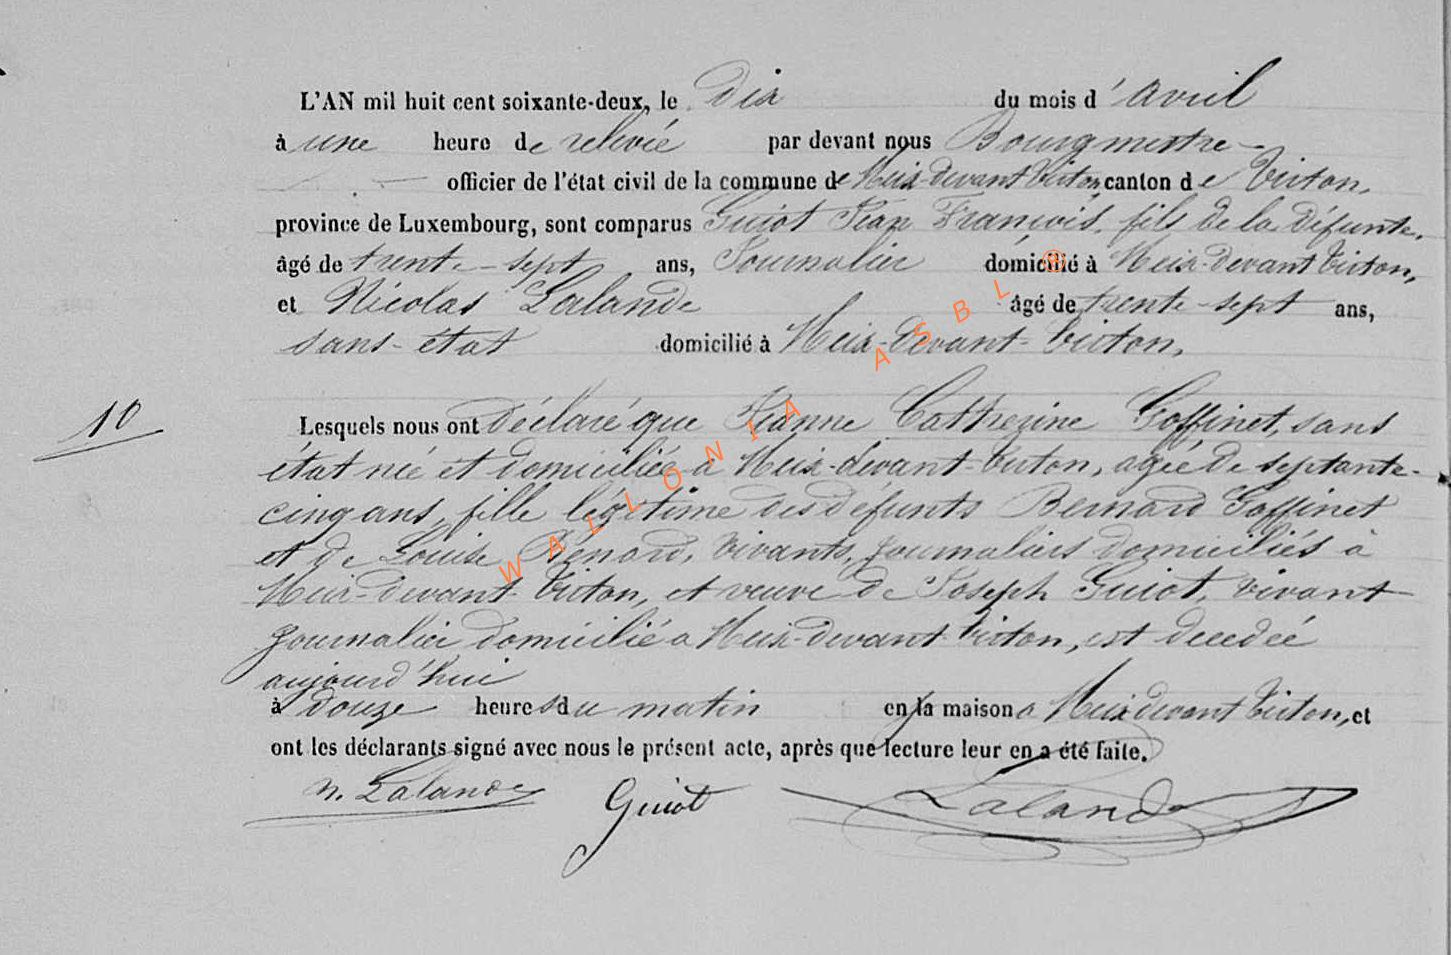 L'AN mil huit cent soixante-deux, le Dix du mois d'avril
à une heure de relevée par devant nous Bourgmestre
officier de l'état civil de la commune de Meix-devant-Virton, canton de Virton,
province de Luxembourg, sont comparus Guiot Jean François, fils de la défunte,
âgé de trente-sept ans, Journalier domicilié à Meix-devant Virton,
et Nicolas Lalande âgé de trente-sept ans,
sans-état domicilié à Meix-devant-Virton,
10
Lesquels nous ont Déclaré que Jeanne Catherine Goffinet, sans
état née et domiciliée à Meix-devant-Virton, agée de septante-
cinq ans, fille légitime des défunts Bernard Goffinet
et de Louise Renard, vivants, journaliers domiciliés à
Meix-devant-Virton, et veuve de Joseph Guiot, vivant
journalier domicilié a Meix-devant-Virton, est decedée
aujourd'hui
à douze heures du matin en la maison a Meix devant Virton, et
ont les déclarants signé avec nous le présent acte, après que lecture leur en a été faite.
N. Lalande Guiot Laland
WALLONIA ASBL ®